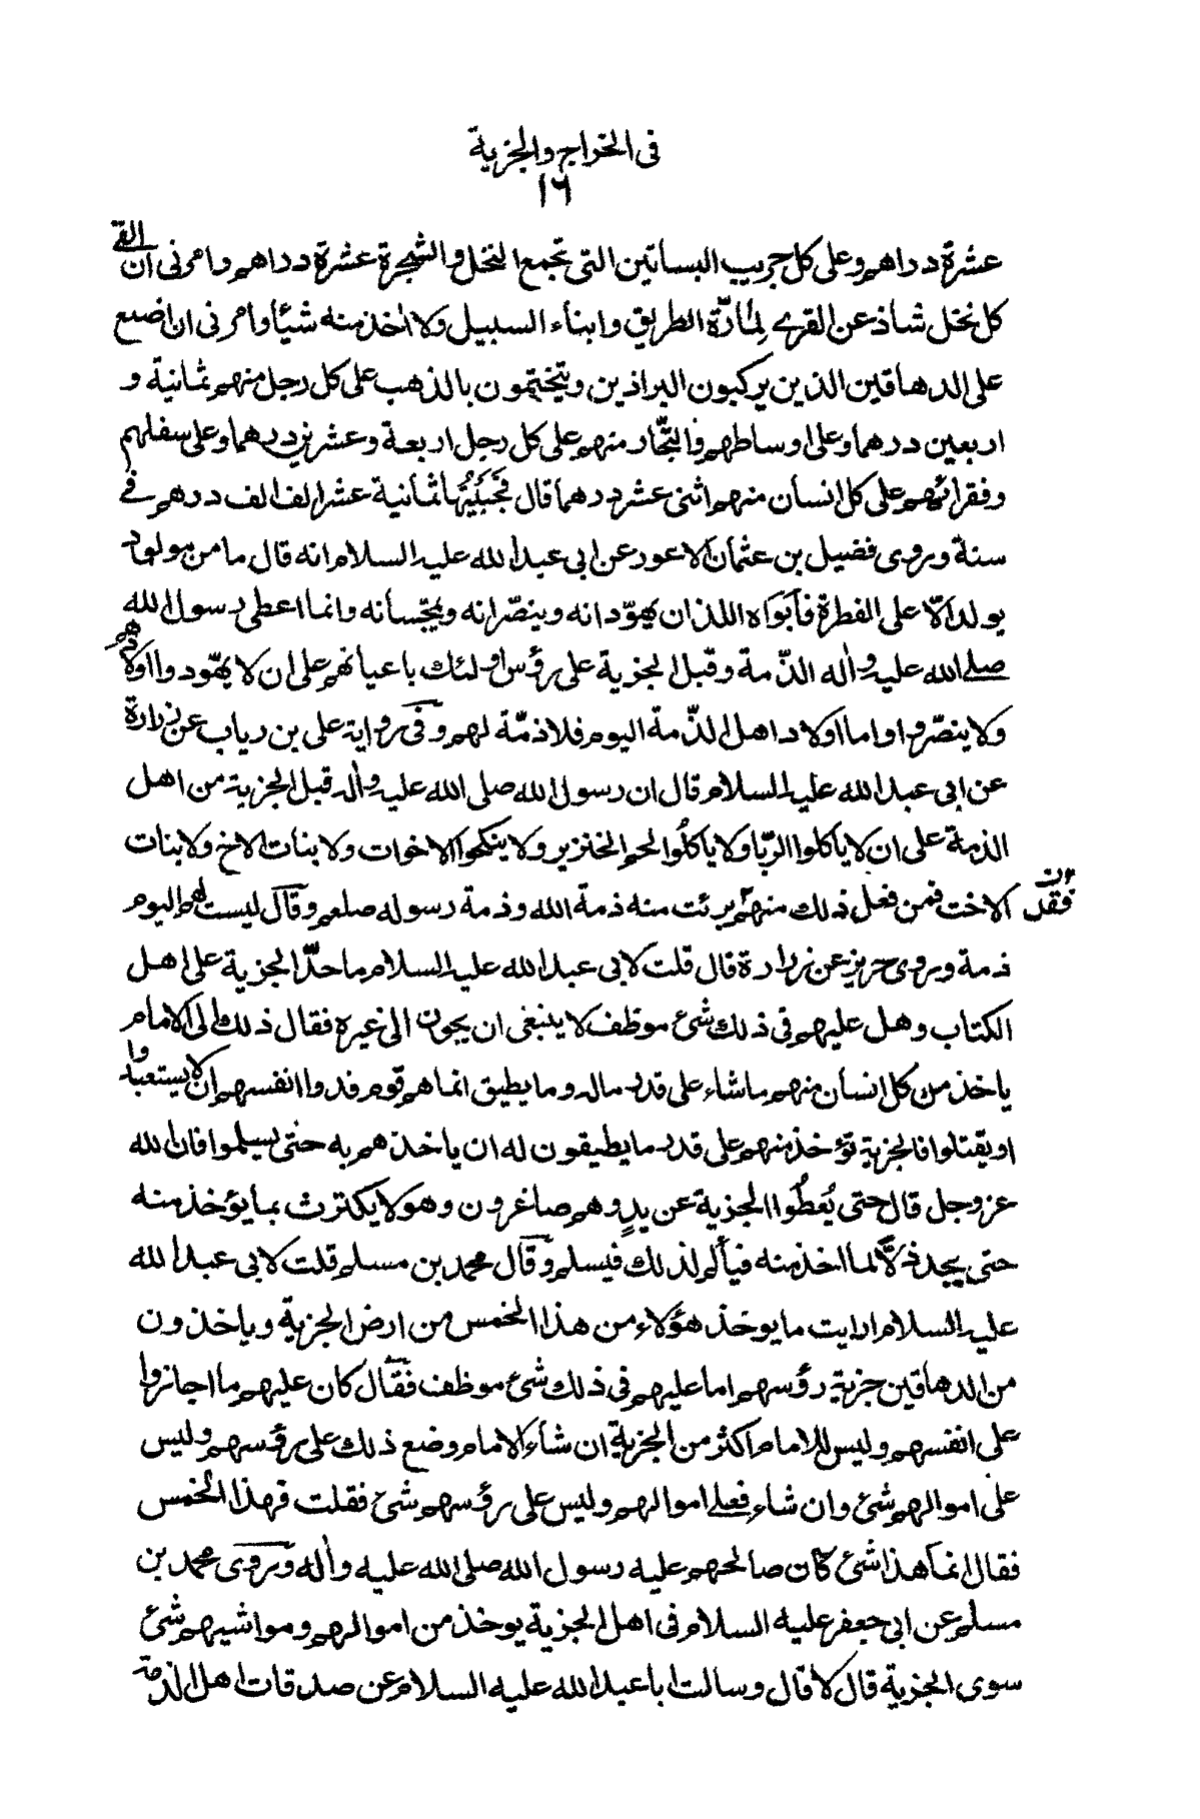 فى الخراج والجزية
١٦
عشرة دراهم وعلى كل جريب البساتين التى تجمع النخل والشجرة عشرة دراهم وامرنى ان القى
كل نخل شاذ عن القرى لمارّة الطريق وابناء السبيل ولا اخذ منه شيئا وامرنى ان اضع
على الدهاقين الذين يركبون البراذين ويتختمون بالذهب على كل رجل منهم ثمانية و
اربعين درهما وعلى اوساطهم والتجّار منهم على كل رجل اربعة وعشرين درهما وعلى سفلهم
وفقرائهم على كل انسان منهم اثنى عشر درهما قال فَجَبَيْتُها ثمانية عشر الف الف درهم فى
سنة وروى فضيل بن عثمان الاعور عن ابى عبد الله عليه السلام انه قال ما من مولود
يولد الّا على الفطرة فأبَواه اللذان يهوّدانه وينصّرانه ويمجّسانه وانما اعطى رسول الله
صلى الله عليه واله الذّمة وقبل الجزية على رؤس اولئك باعيانهم على ان لا يهّودوا اولادهم
ولا ينصّروا واما اولاد اهل الذّمة اليوم فلا ذمّة لهم وفى رواية على بن رياب عن زرارة
عن ابى عبد الله عليه السلام قال ان رسول الله صلى الله عليه واله قبل الجزية من اهل
الذمة على ان لا ياكلوا الرّبا ولا ياكلُوا لحم الخنزير ولا ينكحوا الاخوات ولا بنات الاخ ولا بنات
الاخت فمن فعل ذلك منهم برئت منه ذمة الله وذمة رسوله صلعم وقال ليست لهم اليوم
فقد
ذمة وروى حريز عن زرارة قال قلت لابى عبد الله عليه السلام ما حدّ الجزية على اهل
الكتاب وهل عليهم فى ذلك شئ موظف لا ينبغى ان يجوز الى غيره فقال ذلك الى الامام
ياخذ من كل انسان منهم ما شاء على قدر ماله وما يطيق انما هم قوم فدوا انفسهم ان لا يستعبدوا
او يقتلوا فالجزية تؤخذ منهم على قدر ما يطيقون له ان ياخذهم به حتى يسلموا فان الله
عز وجل قال حتى يُعطُوا الجزية عن يدٍ وهم صاغرون وهو لا يكترث بما يؤخذ منه
حتى يجد ذلّا لما اخذ منه فيألم لذلك فيسلم وقال محمد بن مسلم قلت لابى عبد الله
عليه السلام ارايت ما يوخذ هؤلاء من هذا الخمس من ارض الجزية وياخذون
من الدهاقين جزية رؤسهم اما عليهم فى ذلك شئ موظف فقال كان عليهم ما اجازوا
على انفسهم وليس للامام اكثر من الجزية ان شاء الامام وضع ذلك على رؤسهم وليس
على اموالهم شئ وان شاء فعلى اموالهم وليس على رؤسهم شئ فقلت فهذا الخمس
فقال انما هذا شئ كان صالحهم عليه رسول الله صلى الله عليه واله وروى محمد بن
مسلم عن ابى جعفر عليه السلام فى اهل الجزية يوخذ من اموالهم ومواشيهم شئ
سوى الجزية قال لا قال وسالت ابا عبد الله عليه السلام عن صدقات اهل الذمة